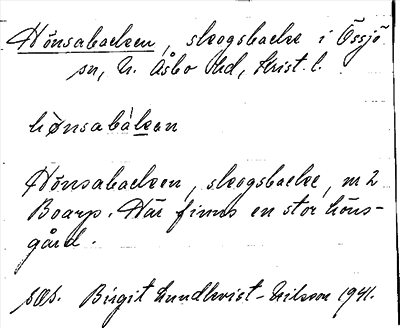 Hönsabacken, skogsbacke i Össjö
sn, N. Åsbo hd, Krist. l.
hø̀nsabàkean
Hönsabacken, skogsbacke, m 2
Boarp. Här finns en stor höns-
gård.
Birgit Lundkvist-Nilsson 1941.